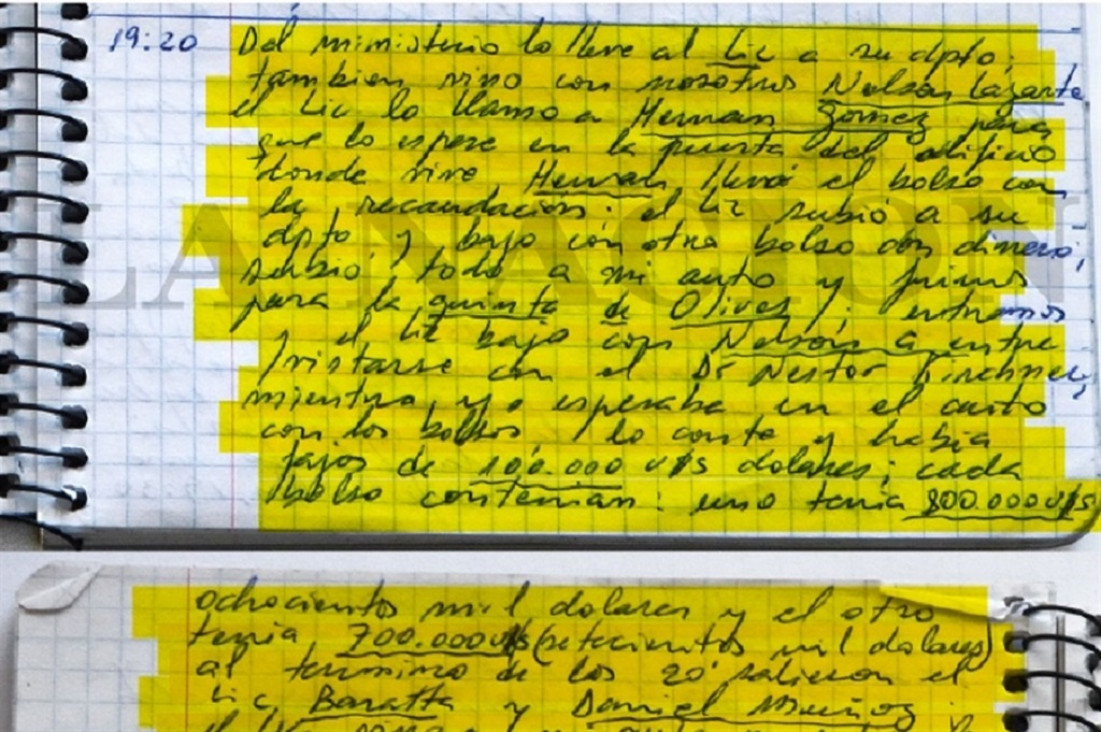 19:20 Del ministerio lo lleve al Lic a su dpto;
tambien vino con nosotros Nelson Lazarte
el Lic lo llamo a Hernan Gomez para
que lo espere en la puerta del edificio
donde vive Hernan llevó el bolso con
la recaudacion. el Lic subió a su
dpto y bajo con otro bolso con dinero;
subió todo a mi auto y fuimos
para la quinta de Olivos; entramos
y el Lic bajo con Nelson a entre
vistarse con el Dr Nestor Kirchner,
mientras yo esperaba en el auto
con los bolsos, lo conte y habia
fajos de 100.000 u$s dolares; cada
bolso contenian: uno tenia 800.000 u$s
ochocientos mil dolares y el otro
tenia 700.000 u$s (setecientos mil dolares)
al termino de los 20' salieron el
Lic Baratta y Daniel Muñoz y
LA NACION